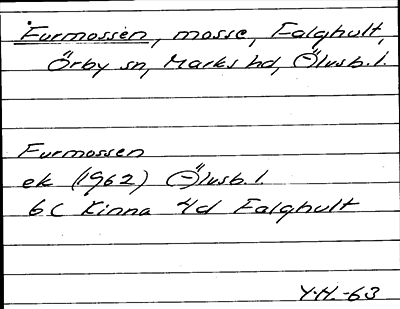 Furmossen, mosse, Falghult,
Örby sn, Marks hd, Älvsb. l.
Furmossen
ek (1962) Älvsb. l.
6C Kinna 4d Falghult
Y.H.-63